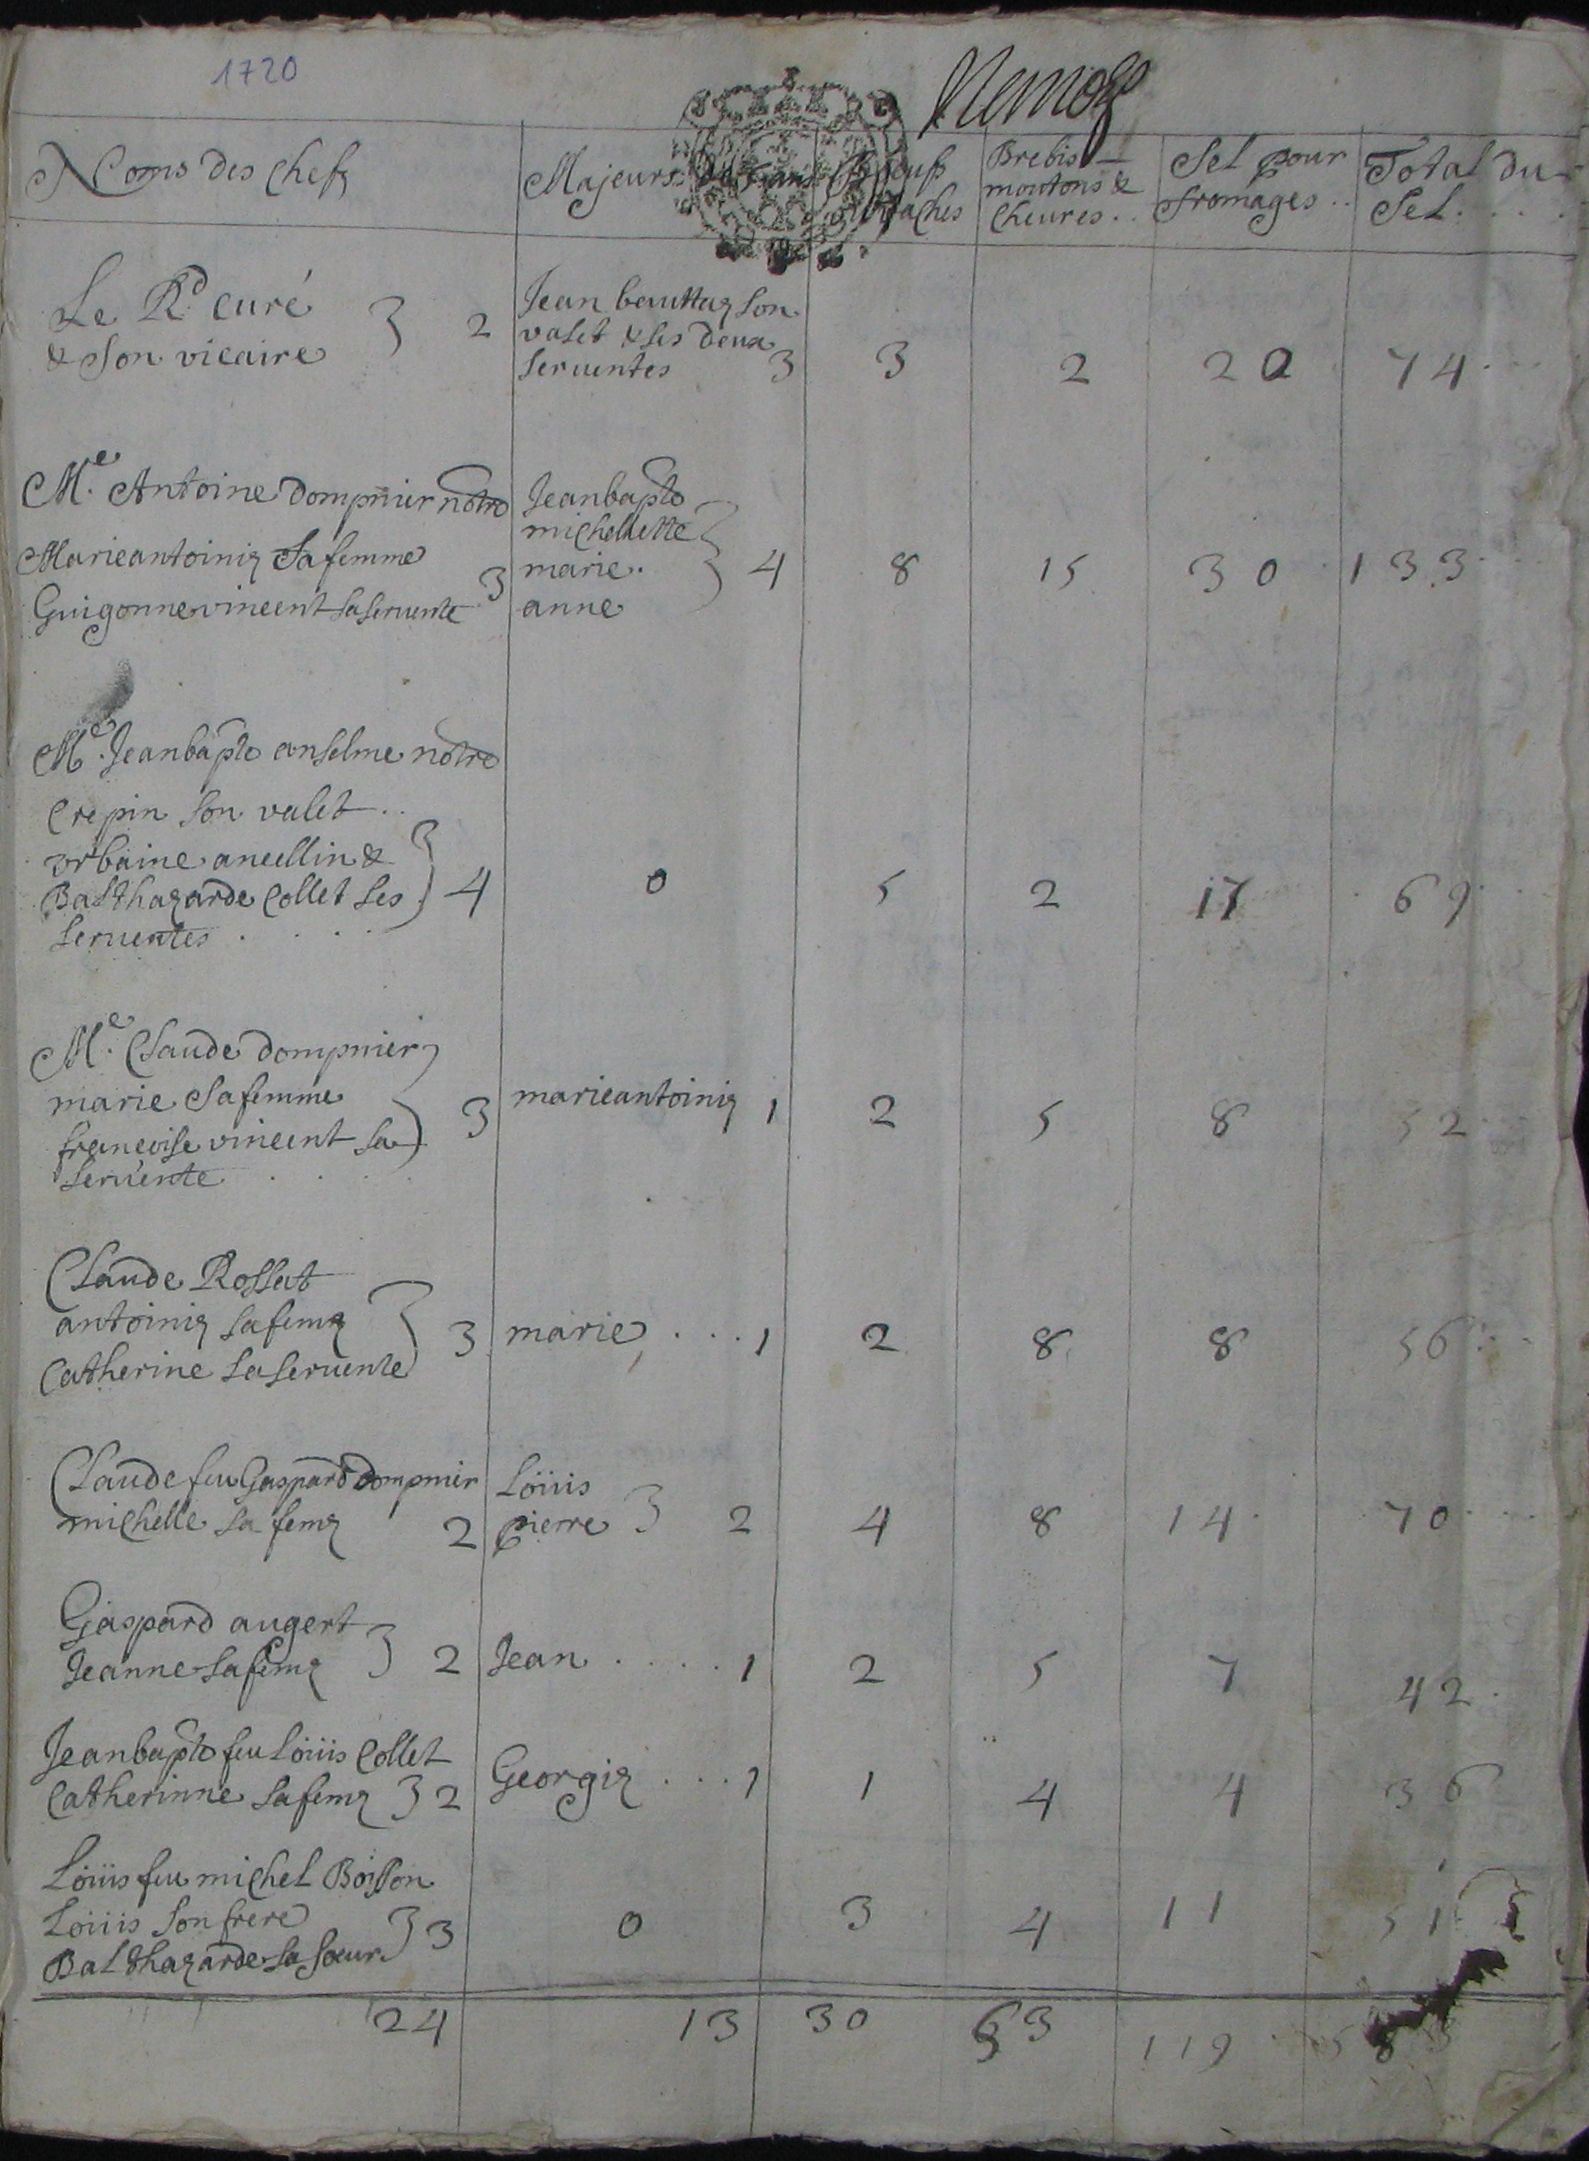 1720
Noms des chefz Majeurs de 5 ans Boeufs vaches Brebis moutons & cheures.. Sel pour fromages.. Total du Sel....
Le Rd curé
& Son vicaire } 2
Jean beuttaz son
valet & ses deux
seruentes 3 3 2 20 74
Me. Antoine dompnier notre
Marieantoiniz Sa femme
Guigonne vincent sa seruente 3
Jeanbapte
michellette
marie.
anne } 4 8 15 30 133
Me. Jeanbapte anselme notre
Crepin son valet..
vrbaine ancellin &
Balthazarde Collet ses
seruentes .... } 4 0 5 2 17 69
Me. Claude dompnier
marie Sa femme
francoise vincent sa
seruente .... } 3 marieantoiniz 1 2 5 8 52
Claude Rossat
antoiniz sa femz
Catherine sa seruente } 3 marie ... 1 2 8 8 56
Claude feu Gaspard dompnier
michelle sa femz 2
Löuis
pierre } 2 4 8 14 70
Gaspard augert
Jeanne sa femz } 2 Jean ..... 1 2 5 7 42
Jeanbapte feu Löuis Collet
Catherinne sa femz } 2 Georgiz ... 1 1 4 4 36
Löuis feu michel Boisson
Löuis son frere
Balthazarde sa soeur } 3 0 3 4 11 51
24 13 30 53 119 58